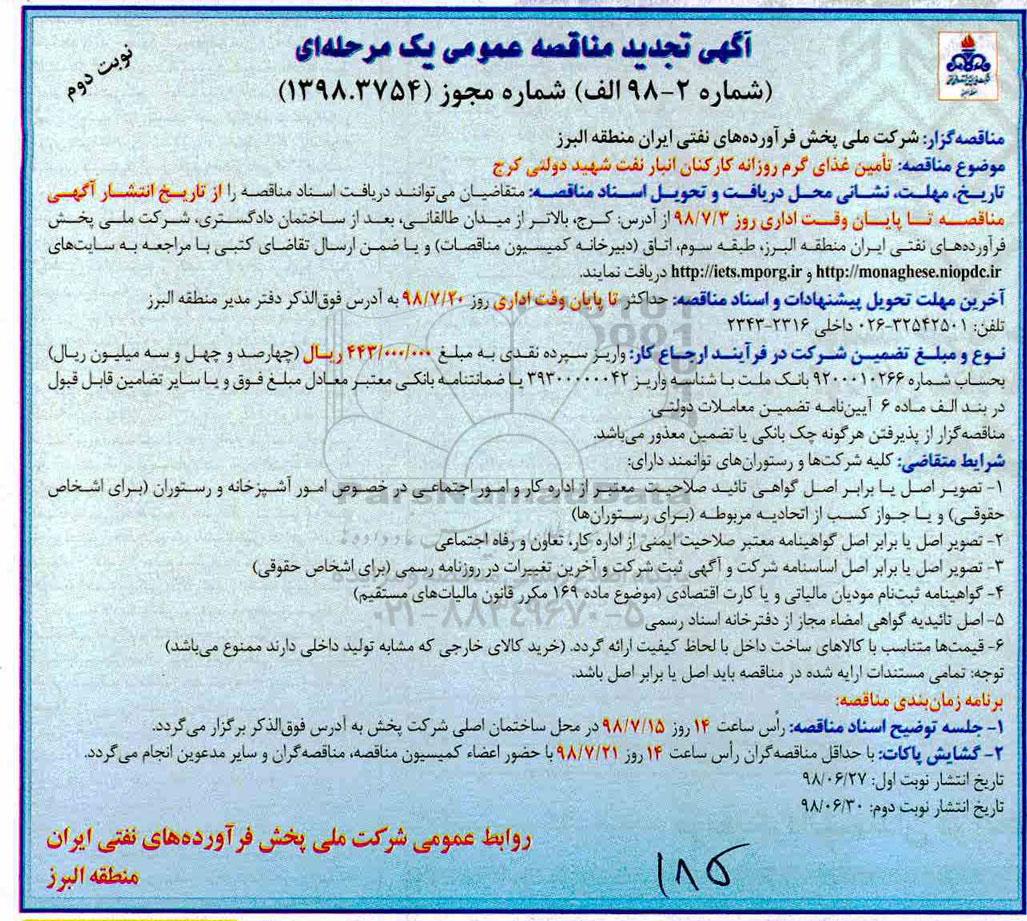 آگهی تجدید مناقصه عمومی یک مرحله‌ای
نوبت دوم
(شماره ۲-۹۸ الف) شماره مجوز (۱۳۹۸.۳۷۵۴)
مناقصه‌گزار: شرکت ملی پخش فرآورده‌های نفتی ایران منطقه البرز
موضوع مناقصه: تأمین غذای گرم روزانه کارکنان انبار نفت شهید دولتی کرج
تاریخ، مهلت، نشانی محل دریافت و تحویل اسناد مناقصه: متقاضیان می‌توانند دریافت اسناد مناقصه را از تاریخ انتشار آگهی
مناقصه تا پایان وقت اداری روز ۹۸/۷/۳ از آدرس: کرج، بالاتر از میدان طالقانی، بعد از ساختمان دادگستری، شرکت ملی پخش
فرآورده‌های نفتی ایران منطقه البرز، طبقه سوم، اتاق (دبیرخانه کمیسیون مناقصات) و یا ضمن ارسال تقاضای کتبی با مراجعه به سایت‌های
http://monaghese.niopdc.ir و http://iets.mporg.ir دریافت نمایند.
آخرین مهلت تحویل پیشنهادات و اسناد مناقصه: حداکثر تا پایان وقت اداری روز ۹۸/۷/۲۰ به آدرس فوق‌الذکر دفتر مدیر منطقه البرز
تلفن: ۳۲۵۴۲۵۰۱-۰۲۶ داخلی ۲۳۱۶-۲۳۴۳
نوع و مبلغ تضمین شرکت در فرآیند ارجاع کار: واریز سپرده نقدی به مبلغ ۴۴۳/۰۰۰/۰۰۰ ریال (چهارصد و چهل و سه میلیون ریال)
بحساب شماره ۹۲۰۰۰۱۰۲۶۶ بانک ملت با شناسه واریز ۳۹۳۰۰۰۰۰۰۴۲ یا ضمانتنامه بانکی معتبر معادل مبلغ فوق و یا سایر تضامین قابل قبول
در بند الف ماده ۶ آیین‌نامه تضمین معاملات دولتی.
مناقصه‌گزار از پذیرفتن هرگونه چک بانکی یا تضمین معذور می‌باشد.
شرایط متقاضی: کلیه شرکت‌ها و رستوران‌های توانمند دارای:
۱- تصویر اصل یا برابر اصل گواهی تائید صلاحیت معتبر از اداره کار و امور اجتماعی در خصوص امور آشپزخانه و رستوران (برای اشخاص
حقوقی) و یا جواز کسب از اتحادیه مربوطه (برای رستوران‌ها)
۲- تصویر اصل یا برابر اصل گواهینامه معتبر صلاحیت ایمنی از اداره کار، تعاون و رفاه اجتماعی
۳- تصویر اصل یا برابر اصل اساسنامه شرکت و آگهی ثبت شرکت و آخرین تغییرات در روزنامه رسمی (برای اشخاص حقوقی)
۴- گواهینامه ثبت‌نام مودیان مالیاتی و یا کارت اقتصادی (موضوع ماده ۱۶۹ مکرر قانون مالیات‌های مستقیم)
۵- اصل تائیدیه گواهی امضاء مجاز از دفترخانه اسناد رسمی
۶- قیمت‌ها متناسب با کالاهای ساخت داخل با لحاظ کیفیت ارائه گردد. (خرید کالای خارجی که مشابه تولید داخلی دارند ممنوع می‌باشد)
توجه: تمامی مستندات ارایه شده در مناقصه باید اصل یا برابر اصل باشد.
برنامه زمان‌بندی مناقصه:
۱- جلسه توضیح اسناد مناقصه: رأس ساعت ۱۴ روز ۹۸/۷/۱۵ در محل ساختمان اصلی شرکت پخش به آدرس فوق‌الذکر برگزار می‌گردد.
۲- گشایش پاکات: با حداقل مناقصه‌گران رأس ساعت ۱۴ روز ۹۸/۷/۲۱ با حضور اعضاء کمیسیون مناقصه، مناقصه‌گران و سایر مدعوین انجام می‌گردد.
تاریخ انتشار نوبت اول: ۹۸/۰۶/۲۷
تاریخ انتشار نوبت دوم: ۹۸/۰۶/۳۰
روابط عمومی شرکت ملی پخش فرآورده‌های نفتی ایران
منطقه البرز
ParsNamadData
۰۲۱-۸۸۳۴۹۶۷۰-۵